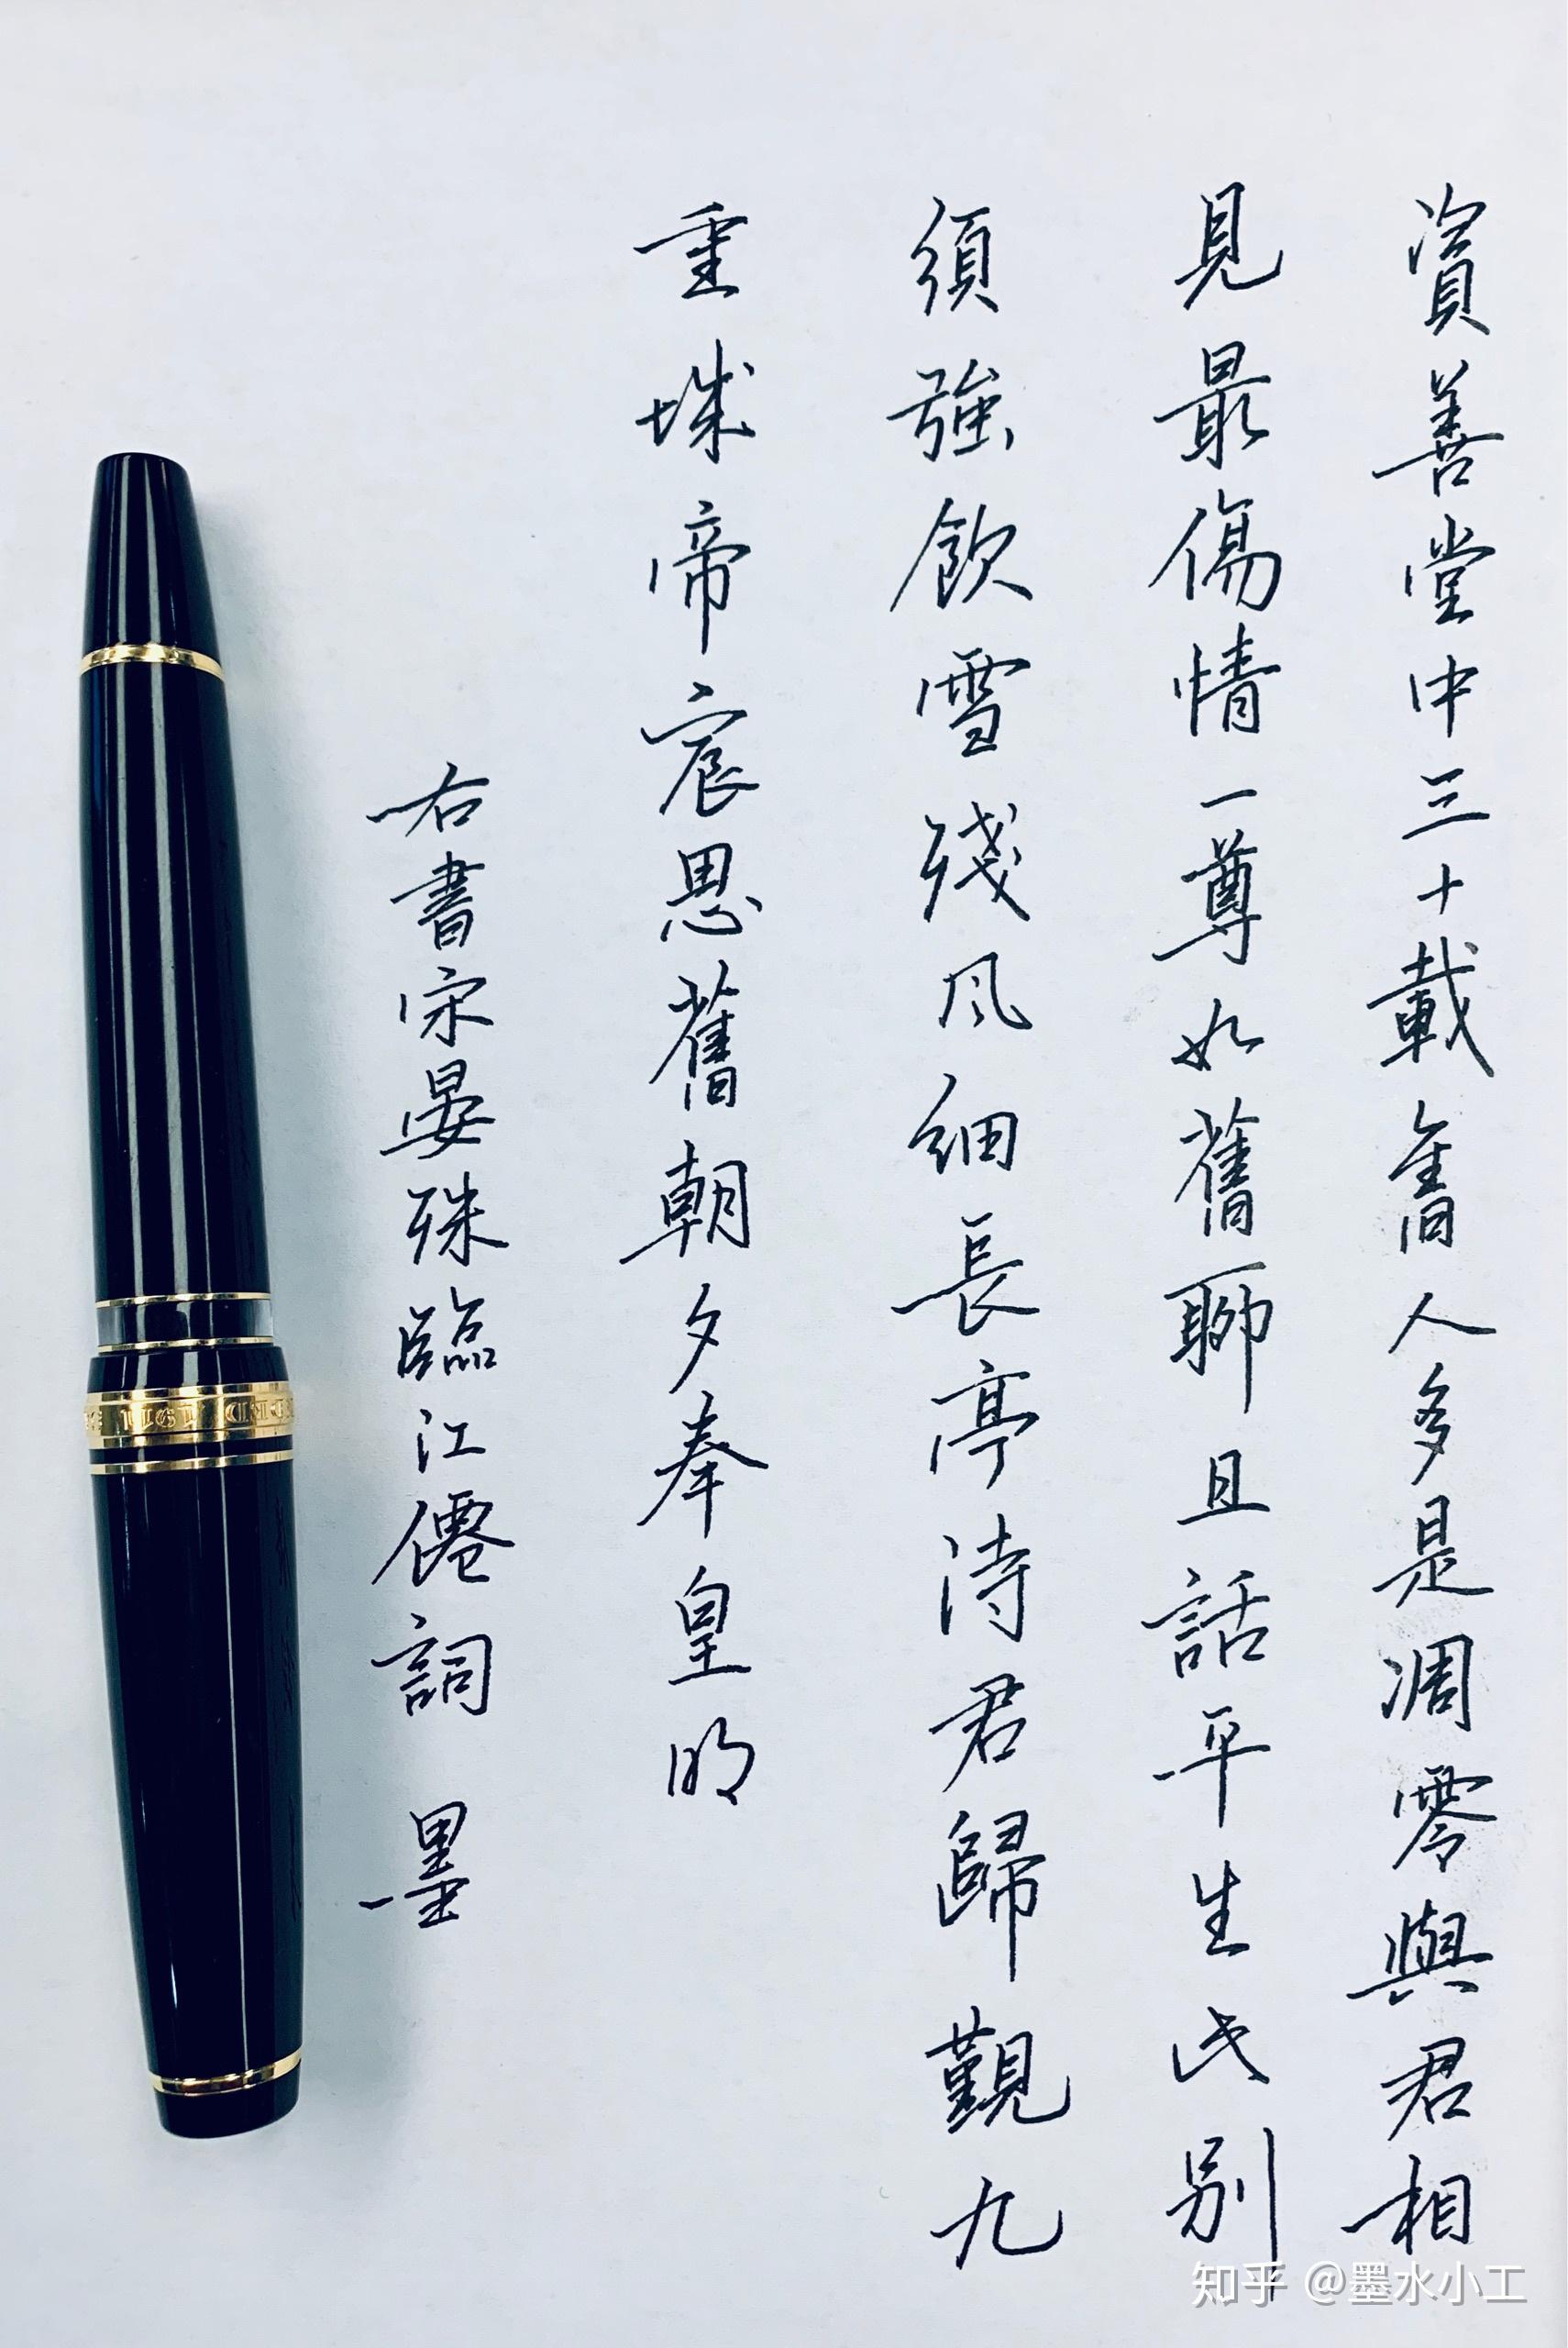 資善堂中三十載舊人多是凋零與君相
見最傷情一尊如舊聊且話平生此別
須強飲雪殘風細長亭待君歸覲九
重城帝宸思舊朝夕奉皇明
右書宋晏殊臨江僊詞 墨
1911
知乎 @墨水小工